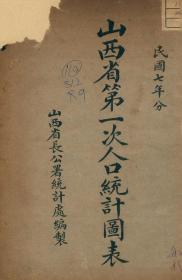 民國七年分
山西省第一次人口統計圖表
山西省長公署統計處編製